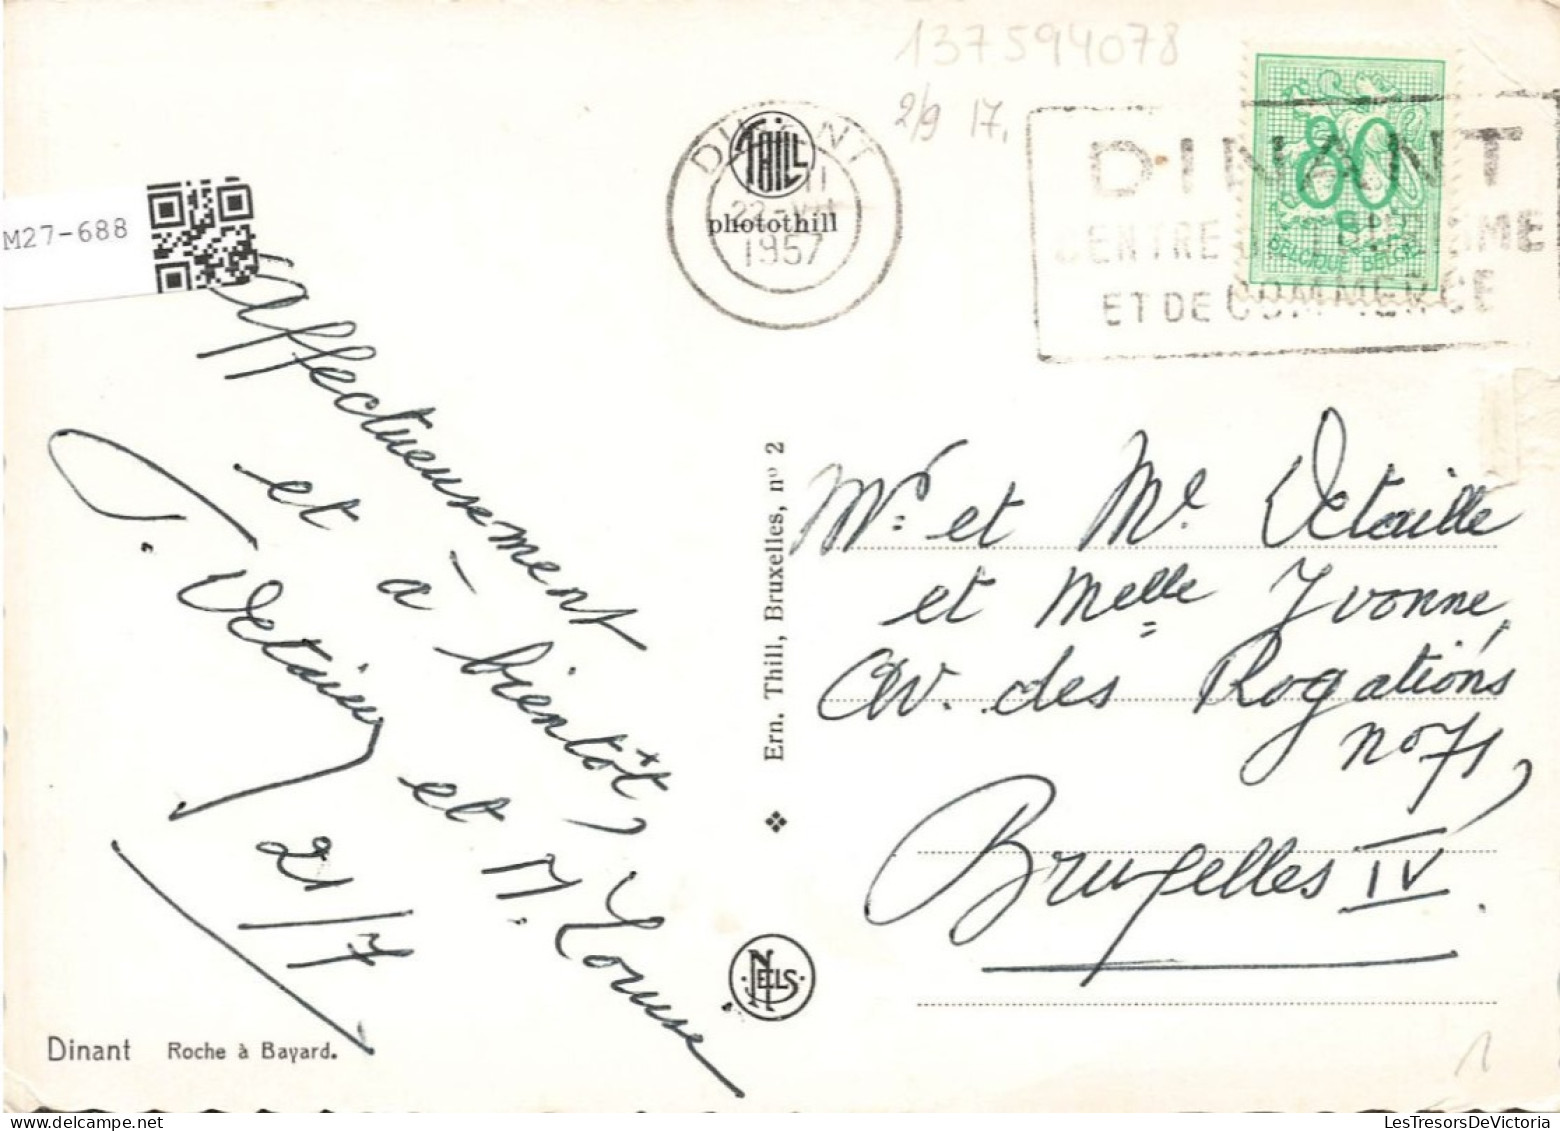 137594078
2/9 17.
M27-688
DINANT
THILL
photothill
1957
DINANT
CENTRE DE TOURISME
ET DE COMMERCE
80
BELGIQUE BELGIE
Affectueusement
et à bientôt,
J. Detaille
et M. Louise
21/7
Ern. Thill, Bruxelles, nº 2
Mr et Me Detaille
et Melle Yvonne,
Av. des Rogations
no 71,
Bruxelles IV.
NELS
Dinant Roche à Bayard.
1
LesTresorsDeVictoria